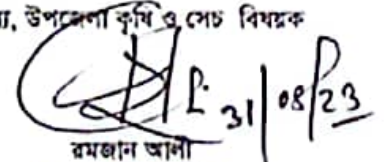 উপজেলা কৃষি ও সেচ বিষয়ক
31/08/23
রমজান আলী